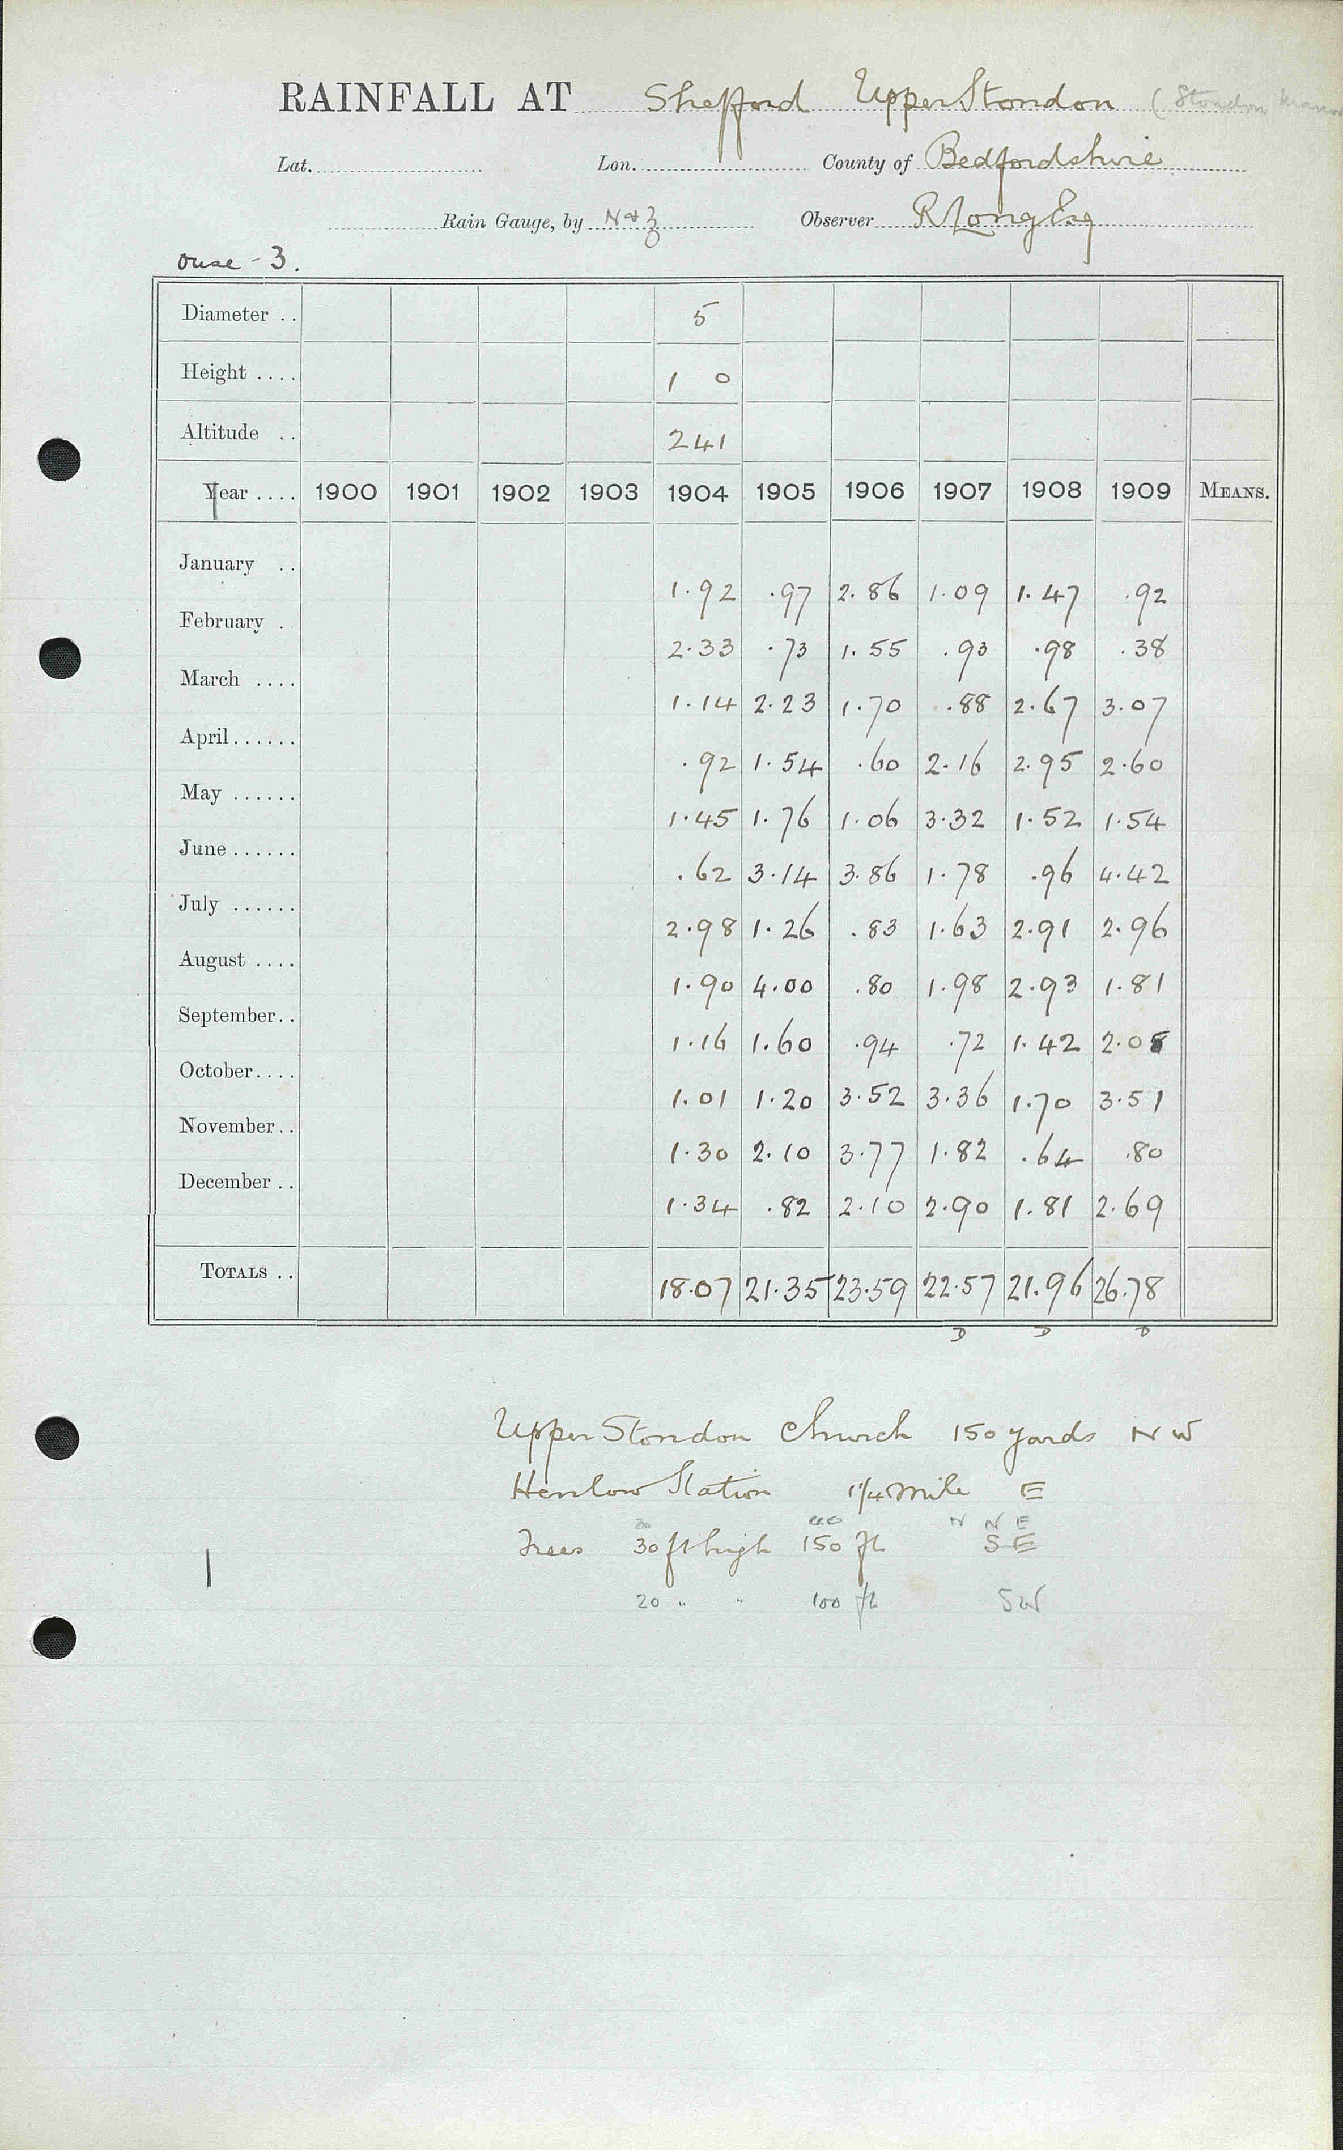 RAINFALL AT Shefford Upper Stondon (Stondon Manor
Lat. Lon. County of Bedfordshire
Rain Gauge, by N & Z Observer R Long Esq
Ouse - 3.
Diameter .. 5
Height .... 1 0
Altitude .. 241
Year .... 1900 1901 1902 1903 1904 1905 1906 1907 1908 1909 MEANS.
January .. 1.92 .97 2.86 1.09 1.47 .92
February . 2.33 .73 1.55 .93 .98 .38
March .... 1.14 2.23 1.70 .88 2.67 3.07
April...... .92 1.54 .60 2.16 2.95 2.60
May ...... 1.45 1.76 1.06 3.32 1.52 1.54
June ...... .62 3.14 3.86 1.78 .96 4.42
July ...... 2.98 1.26 .83 1.63 2.91 2.96
August .... 1.90 4.00 .80 1.98 2.93 1.81
September.. 1.16 1.60 .94 .72 1.42 2.08
October.... 1.01 1.20 3.52 3.36 1.70 3.51
November.. 1.30 2.10 3.77 1.82 .64 .80
December .. 1.34 .82 2.10 2.90 1.81 2.69
TOTALS .. 18.07 21.35 23.59 22.57 21.96 26.78
D D D
Upper Stondon Church 150 yards NW
Henlow Station 1/4 mile E
40 N N E
Trees 30 ft high 150 ft SE
20 " " 100 ft SW